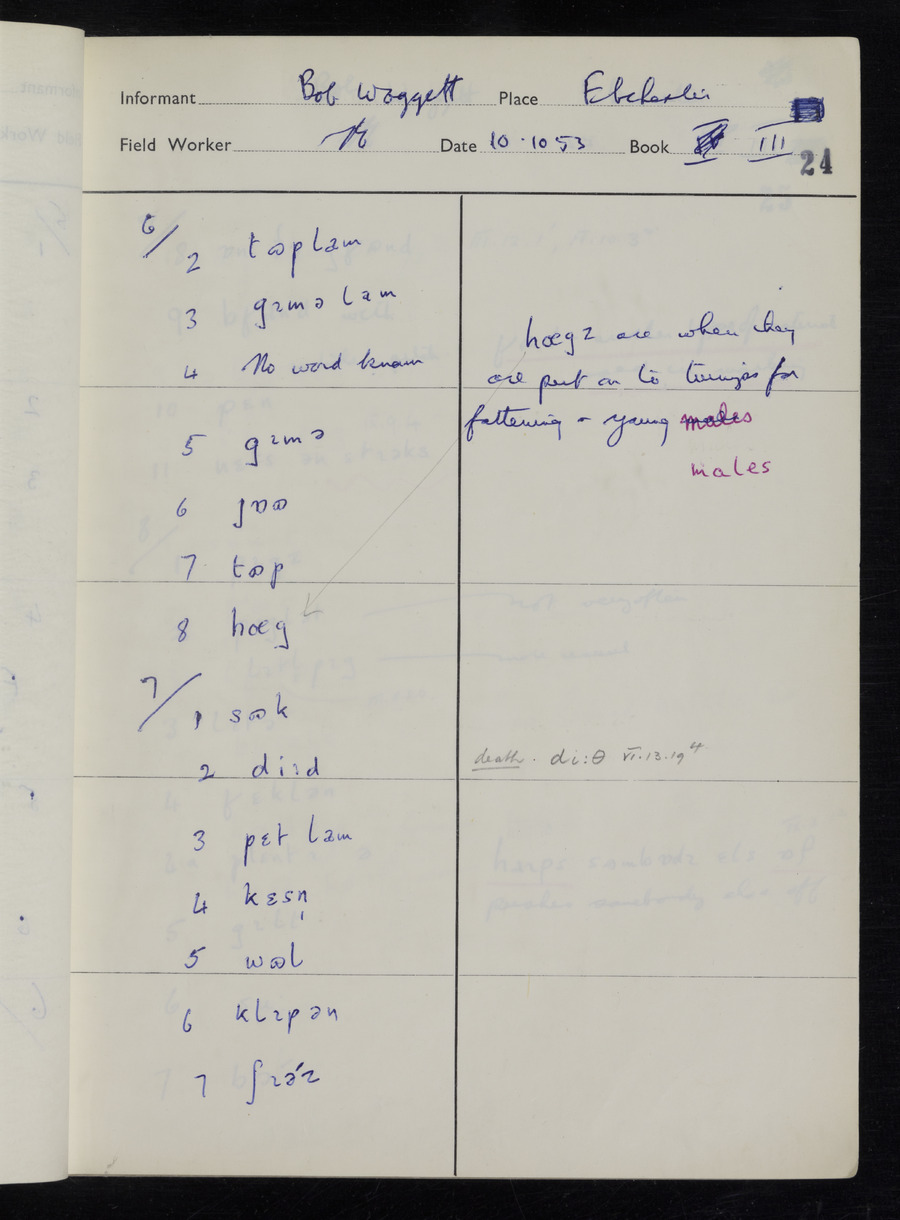 Informant Bob Waggett Place Ebchester
Field Worker Date 10·10 53 Book III
24
6/2 tɷplam
3 gɪmə lam
hœgz are when they
4 No word known
are put on to turnips for
5 gɪmə
fattening - young males
males
6 jɒɷ
7 tɷp
8 hœg
7/1 sɷk
2 diɪd
death. di:θ VI.13.19
3 pɛt lam
4 kɛsn̩
5 wɷl
6 klɪpən
7 ʃɪəz